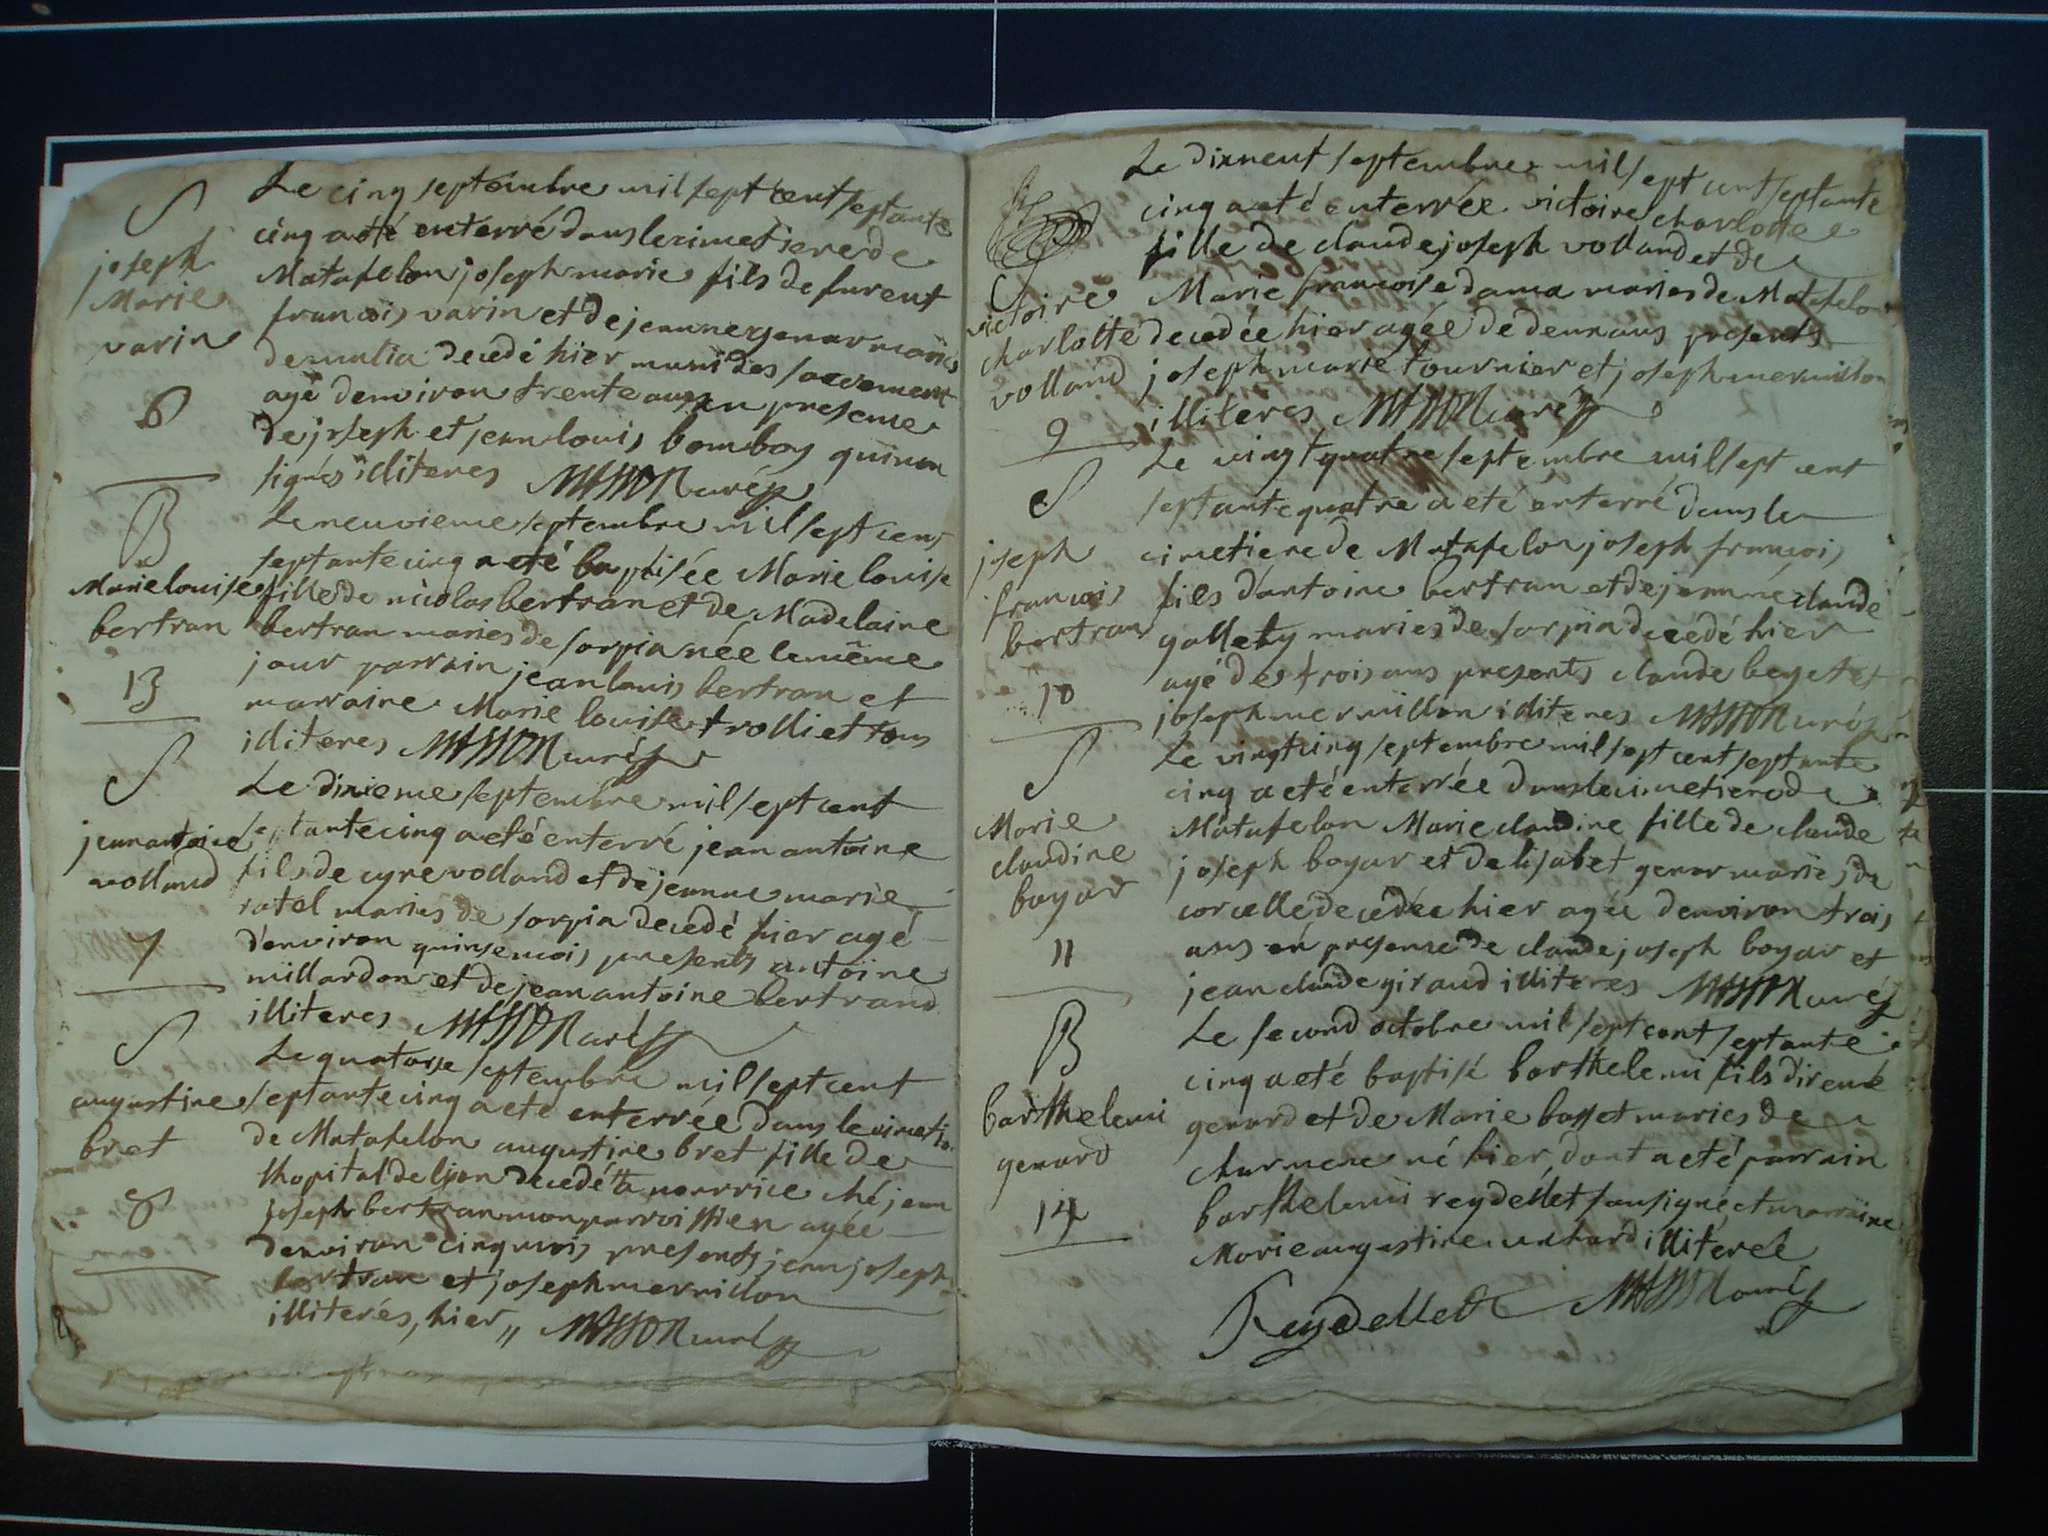 S
joseph
Marie
varin
6
Le cinq septembre mil sept cent septante
cinq a été enterré dans le cimetiere de
Matafelon joseph marie fils de furent
francois varin et de jeanne genar mariés
de mulia decedé hier muni des sacrement
agé denviron trente ans en presence
de joseph et jean louis bomboy qui non
signés illiteres MASSON curé
B
Marie louise
bertran
13
Le neuvieme septembre mil sept cens
septante cinq a eté baptisée Marie louise
fille de nicolas bertran et de Madelaine
bertran maries de sorpia née le même
jour parrain jean louis bertran et
marraine Marie louise trolliet tous
illiteres MASSON curé
S
jean antoine
volland
7
Le dixieme septembre mil sept cent
septante cinq a eté enterré jean antoine
fils de cyre volland et de jeanne marie
ratel maries de sorpia decedé hier agé
d'environ quinse mois presents antoine
millardon et de jean antoine bertrand
illiteres MASSON curé
S
augustine
bret
8
Le quatorse septembre mil sept cent
septante cinq a eté enterrée dans le cimetie.
de Matafelon augustine bret fille de
lhopital de lyon decedée la nourrice ché jean
joseph bertran mon parroissien agée
denviron cinq mois presents jean joseph
bertran et joseph mermillon
illiterés, hier,, MASSON curé
victoire
charlotte
volland
9
Le dixneuf septembre mil sept cent septante
cinq a eté enterrée victoire charlotte
fille de claude joseph volland et de
Marie francoise dama maries de Matafelo
decedée hier agée de deux ans presents
joseph marie tournier et joseph mermillon
illiteres MASSON curé
S
joseph
francois
bertran
10
Le vingt quatre septembre mil sept cent
septante quatre a eté enterré dans le
cimetiere de Matafelon joseph francois
fils d'antoine bertran et de jeanne claude
gallety maries de sorpia decedé hier
agé de trois ans presents claude beyet et
joseph mermillon illiteres MASSON curé
S
Marie
claudine
boyar
11
Le vingt cinq septembre mil sept cent septante
cinq a eté enterrée dans le cimetiere de
Matafelon Marie claudine fille de claude
joseph boyar et delisabet genar mariés de
corcelle decedée hier agée denviron trois
ans en presence de claude joseph boyar et
jean claude giraud illiteres MASSON curé
B
barthelemi
genard
14
Le second octobre mil sept cent septante
cinq a eté baptisé barthelemi fils direné
genard et de Marie basset maries de
charmene né hier, dont a eté parrain
barthelemi reydellet sousigné et marraine
Marie augustine uchard illiterée
Reydellet MASSON curé